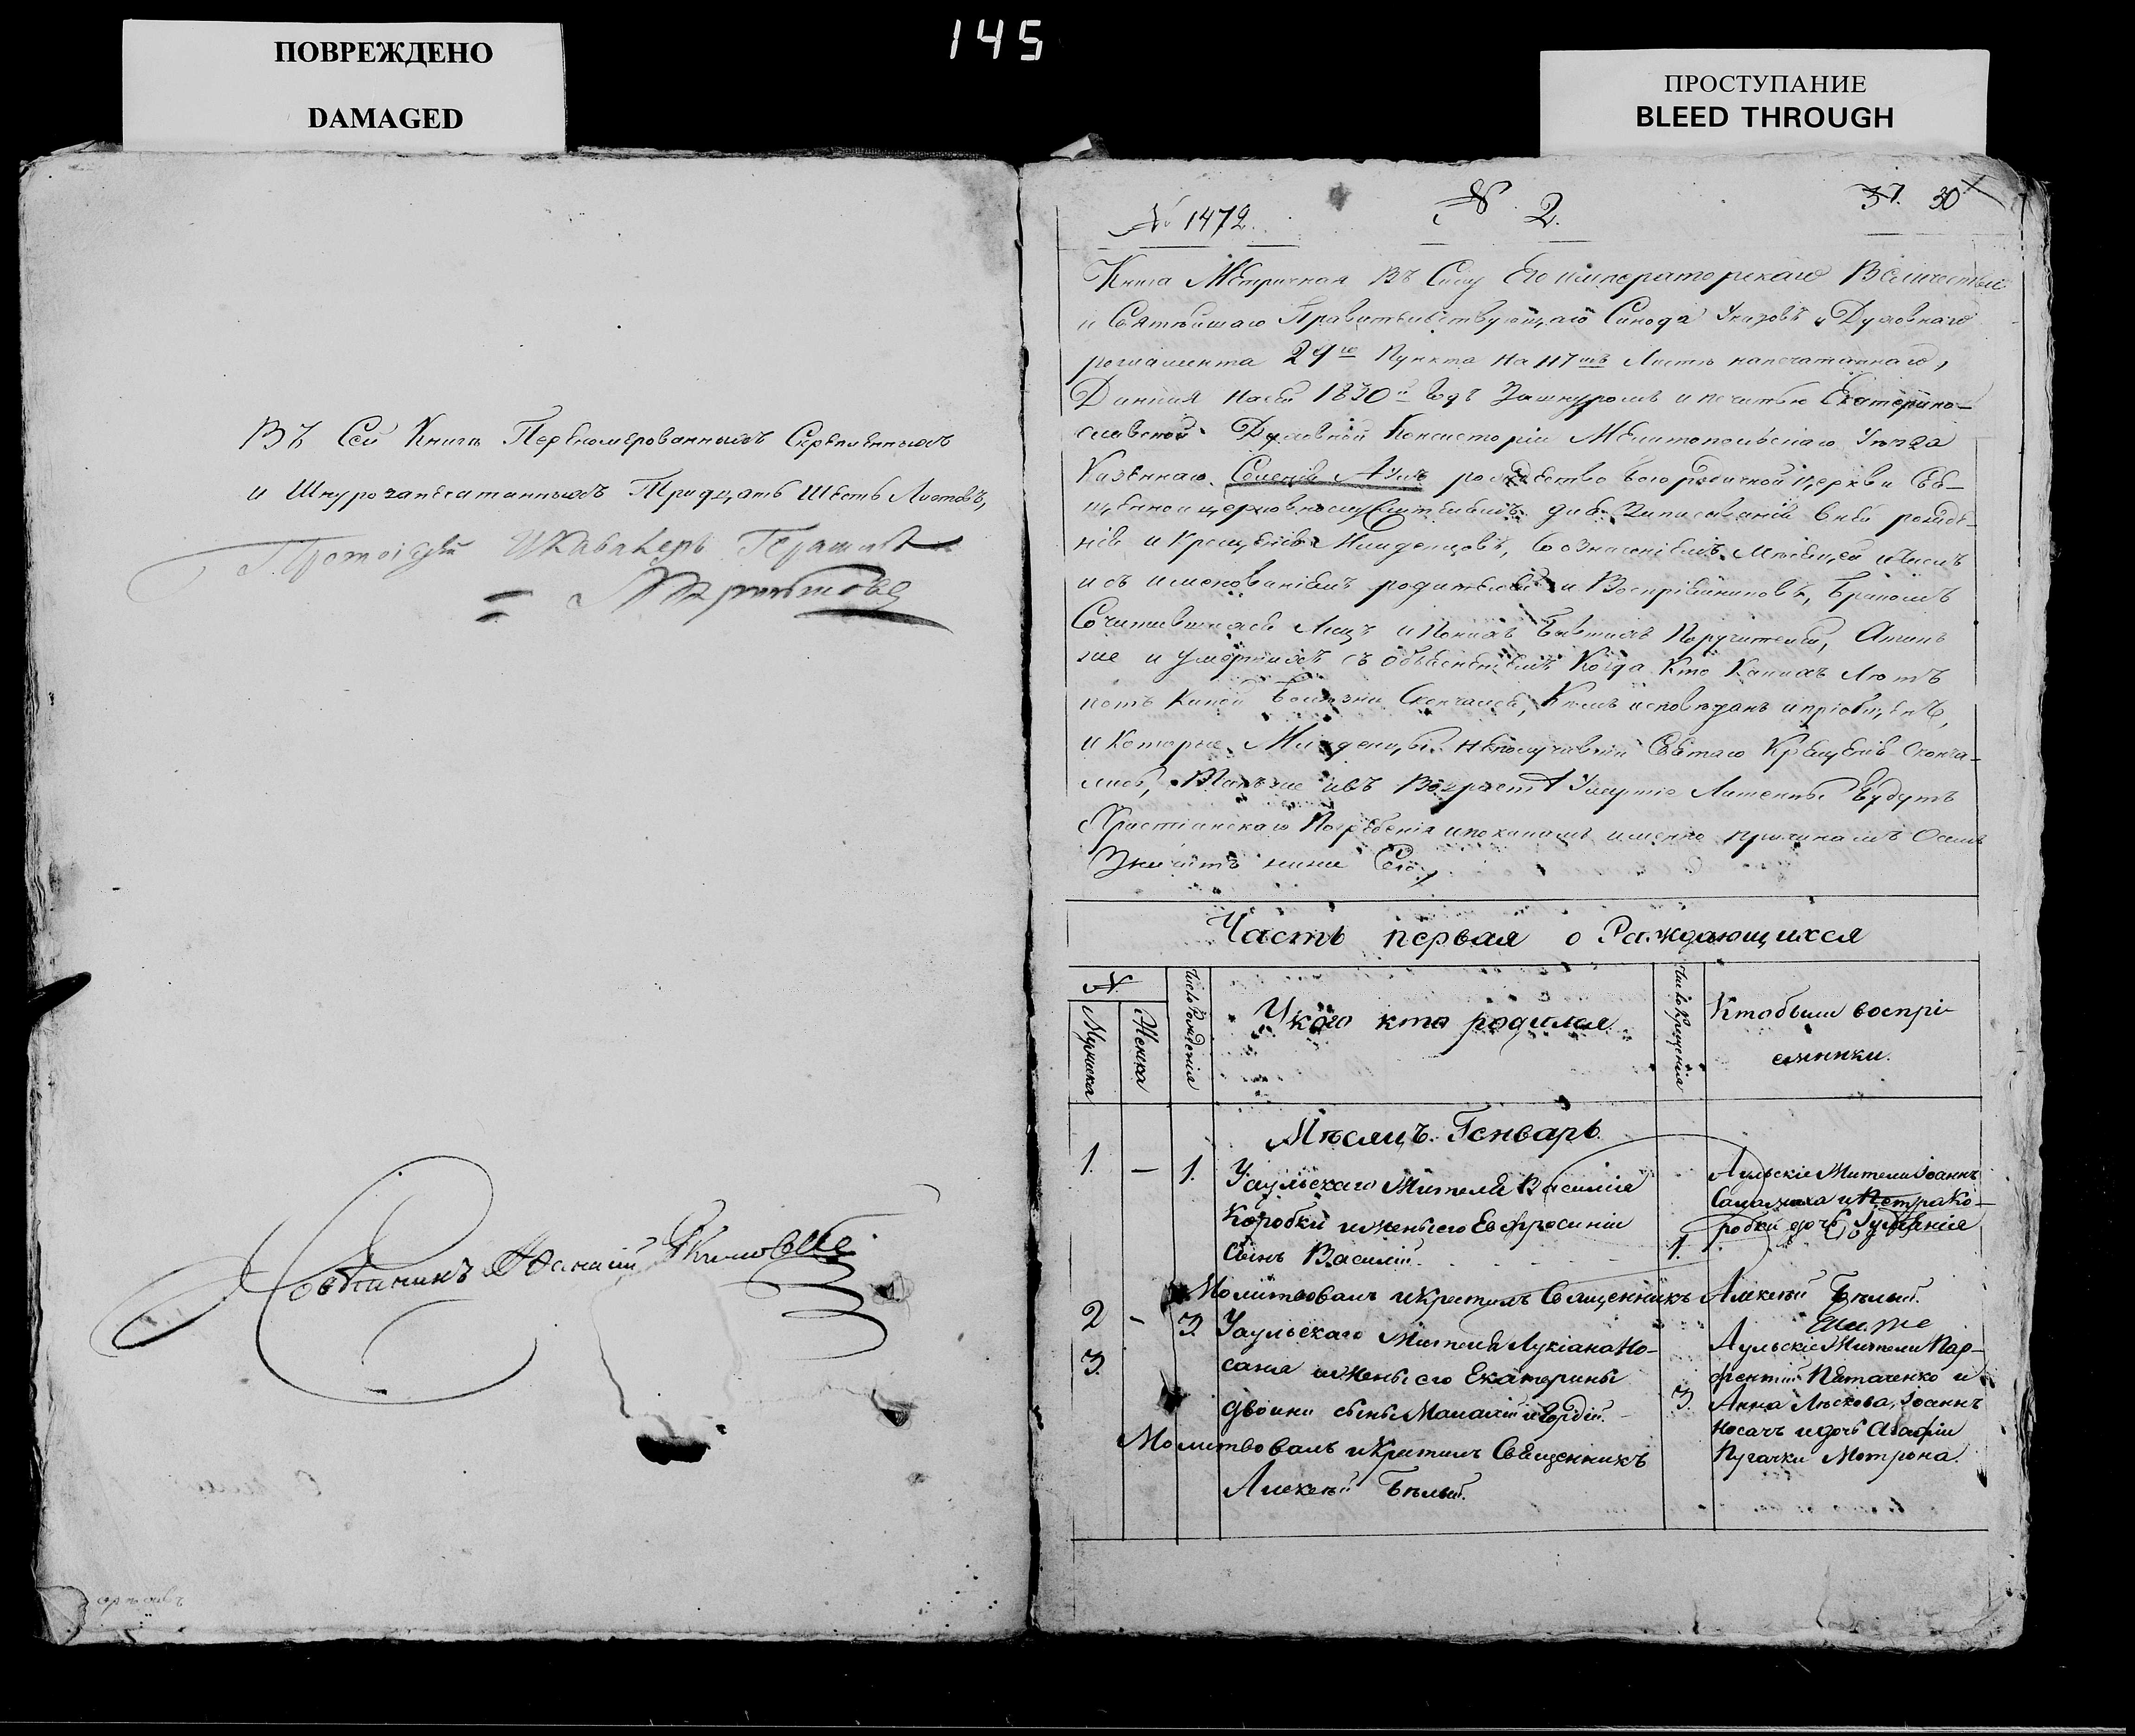 ПОВРЕЖДЕНО
DAMAGED
145
ПРОСТУПАНИЕ
BLEED THROUGH
Въ Сей Книгѣ Перенумерованныхъ Скрепленныхъ
и Шнурозапечатанныхъ Тридцать Шесть Листовъ,
Протоіерей и Кавалеръ Герасимъ
№ 1472.
№ 2.
37. 30
Книга Метричная въ Силу Его императорскаго Величества
и Святѣйшаго Правительствующаго Синода Указовъ и Духовнаго
регламента 29го Пункта на 117мъ Листѣ напечатаннаго,
Данная на сей 1830й Годъ Зашнуромъ и печатью Екатерино-
славской Духовной Консисторіи Мелитопольскаго Уѣзда
Казеннаго Селенія Аулъ рождество богородичной Церкви Свя-
щенноцерковнослужителямъ для Записыванія въ ней рожде-
нія и Крещенія Младенцовъ, Со означеніемъ Мѣсяцей и Числъ
и съ именованіемъ родителей и Воспріемниковъ, бракомъ
Сочитавшихся Лицъ и При нихъ бывшихъ Поручителей, А так
же и умершихъ съ объясненіемъ Когда Кто Какихъ Лѣтъ
и отъ Какой болѣзни Скончался, Кѣмъ исповѣданъ и пріобщенъ,
и Которые Младенцы неполучивши Святаго Крещенія Сконча-
лись, Также и въ Возрастѣ Умершіе Лишенны будутъ
Христіанскаго Погребенія и по какимъ именно причинамъ О семъ
Значитъ ниже Сего,
Часть первая о Раждающихся
№
Мужеска
Женска
Число Рожденія
У кого кто родился.
Число Крещенія
Кто были воспрі-
емники.
Мѣсяцъ Генварь.
1. — 1. У аульскаго Жителя Василія
Коробки и жены его Евфросиніи
сынъ Василій. 1.
Аульскіе Жители Іоаннъ
Саламаха и Петра Ко-
робки дочь Гулянія
Молитвовалъ и Крестилъ Священникъ Алексѣй Бѣлый.
2 - 3. У аульскаго Жителя Лукіана Но-
3. сача и жены его Екатерины
двойни сыны Малахій и Гордій. 3
Аульскіе Жители Пар-
фентій Пятаченко и
Анна Лѣскова, Іоаннъ
Носачъ и дочь Агафіи
Пугачки Мотрона.
Молитвовалъ и Крестилъ Священникъ
Алексѣй Бѣлый.